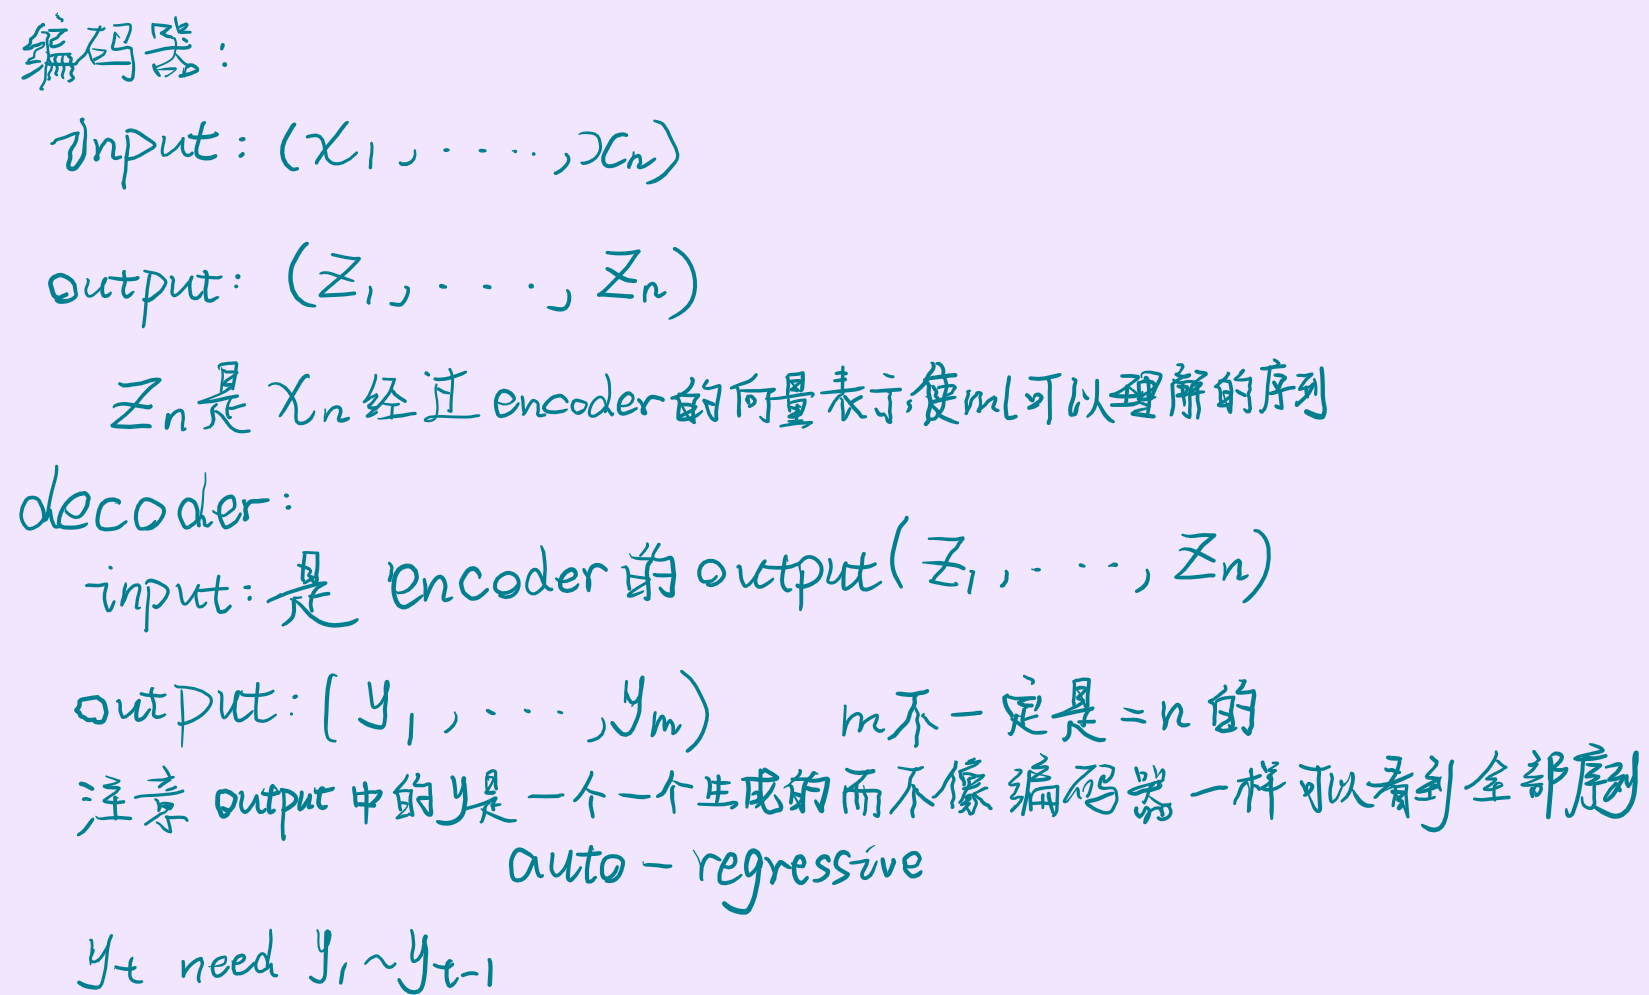 编码器：
input：(x₁, ....., xₙ)
output：(z₁, ...., zₙ)
zₙ是xₙ经过encoder的向量表示，使ml可以理解的序列
decoder：
input：是encoder的output(z₁, ...., zₙ)
output：(y₁, ...., yₘ) m不一定是=n的
注意output中的y是一个一个生成的而不像编码器一样可以看到全部序列
auto-regressive
yₜ need y₁~yₜ₋₁